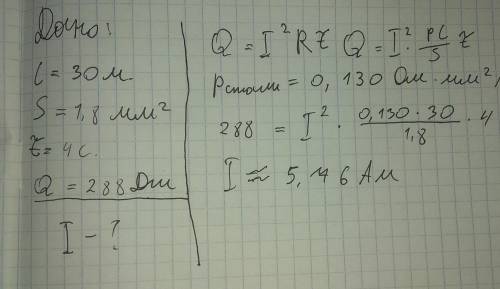 Дано:
l = 30 м.
S = 1,8 мм²
t = 4 с.
Q = 288 Дж
I - ?
Q = I² R t   Q = I² · ρl/S t
ρ стали = 0, 130 Ом · мм²/
288 = I² · 0,130 · 30/1,8 · 4
I ≈ 5,76 Ам